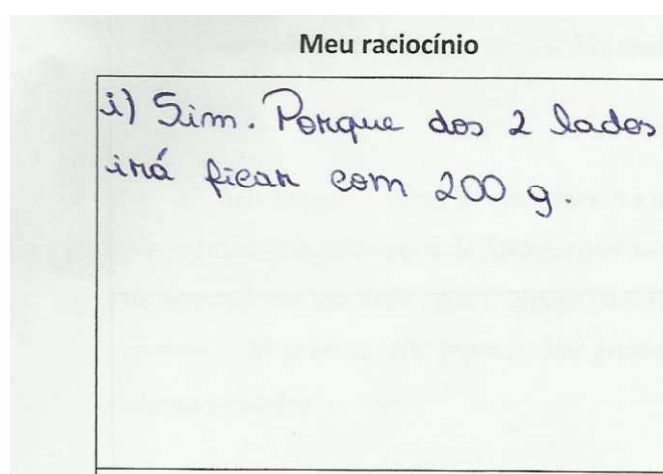 Meu raciocínio
i) Sim. Porque dos 2 lados
irá ficar com 200 g.